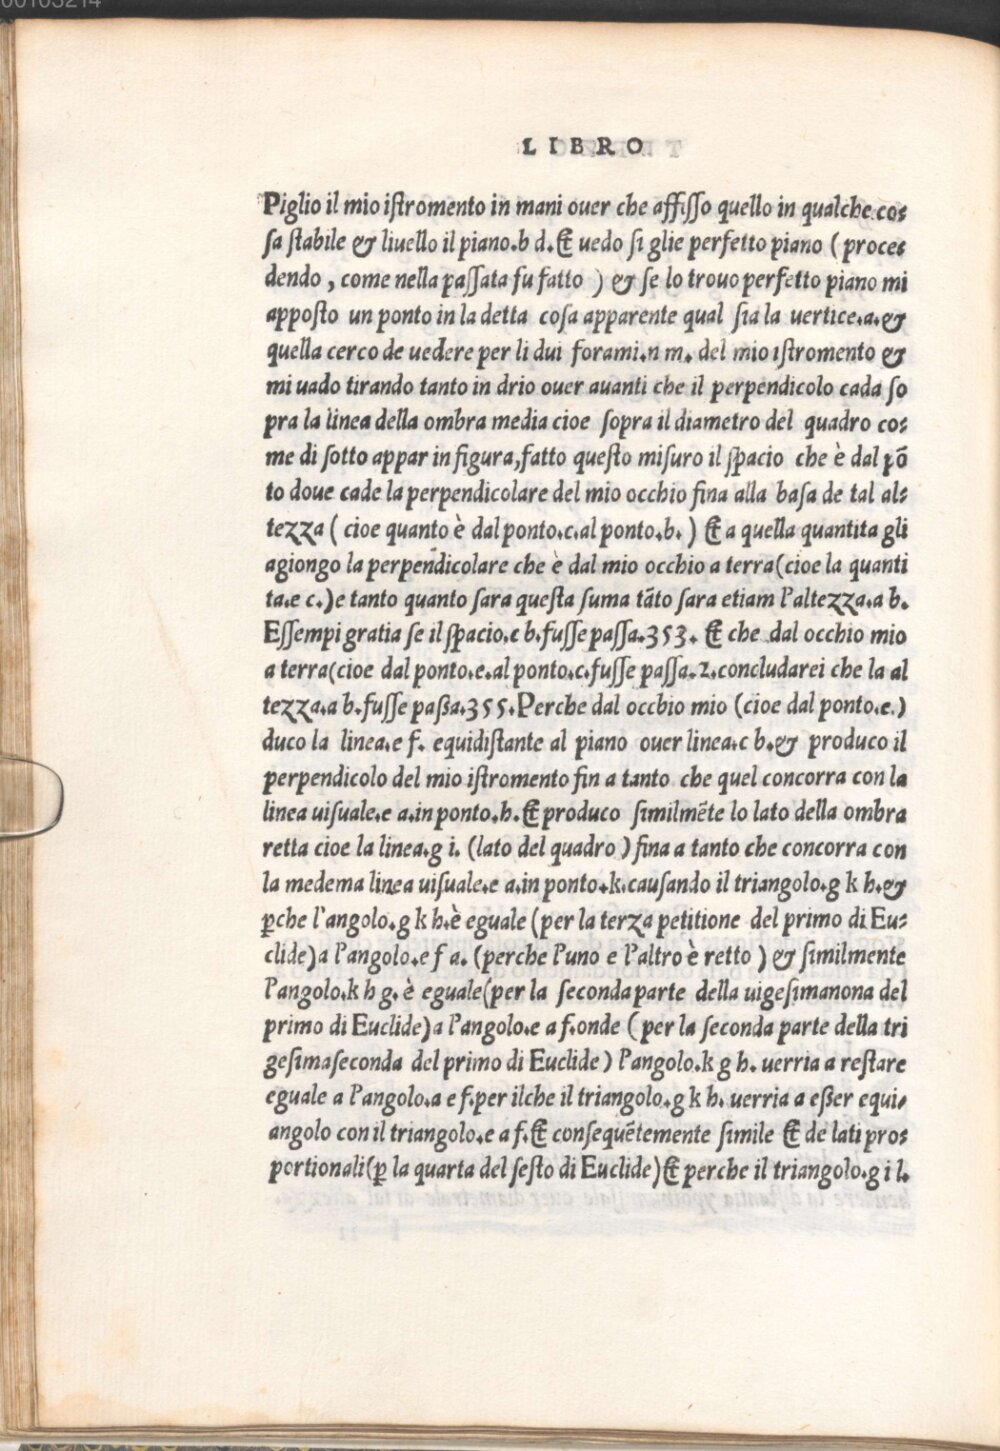 00103214
LIBRO
Piglio il mio iſtromento in mani ouer che affiſſo quello in qualche coſ
ſa ſtabile & liuello il piano.b d. Et uedo ſi glie perfetto piano (proceſ
dendo, come nella paſſata fu fatto ) & ſe lo trouo perfetto piano mi
appoſto un ponto in la detta coſa apparente qual ſia la uertice.a.&
quella cerco de uedere per li dui forami.n m. del mio iſtromento &
mi uado tirando tanto in drio ouer auanti che il perpendicolo cada ſo
pra la linea della ombra media cioe ſopra il diametro del quadro coſ
me di ſotto appar in figura,fatto queſto miſuro il ſpacio che è dal põ
to doue cade la perpendicolare del mio occhio fina alla baſa de tal alſ
tezza ( cioe quanto è dal ponto.c.al ponto.b. ) Et a quella quantita gli
agiongo la perpendicolare che è dal mio occhio a terra(cioe la quanti
ta.e c.)e tanto quanto ſara queſta ſuma tãto ſara etiam l'altezza.a b.
Eſſempi gratia ſe il ſpacio.c b.fuſſe paſſa.353. Et che dal occhio mio
a terra(cioe dal ponto.e.al ponto.c.fuſſe paſſa.2.concludarei che la al
tezza.a b.fuſſe paßa.355.Perche dal occbio mio (cioe dal ponto.e.)
duco la linea.e f. equidiſtante al piano ouer linea.c b.& produco il
perpendicolo del mio iſtromento fin a tanto che quel concorra con la
linea uiſuale.e a.in ponto.h. Et produco ſimilmẽte lo lato della ombra
retta cioe la linea.g i. (lato del quadro ) fina a tanto che concorra con
la medema linea uiſuale.e a.in ponto.k.cauſando il triangolo.g k h.&
ꝑche l'angolo.g k h.è eguale (per la terza petitione del primo di Euſ
clide)a l'angolo.e f a. (perche l'uno e l'altro è retto ) & ſimilmente
l'angolo.k h g. è eguale(per la ſeconda parte della uigeſimanona del
primo di Euclide)a l'angolo.e a f.onde ( per la ſeconda parte della tri
geſimaſeconda del primo di Euclide) l'angolo.k g h. uerria a reſtare
eguale a l'angolo.a e f.per ilche il triangolo.g k h. uerria a eßer equi-
angolo con il triangolo.e a f. Et conſequẽtemente ſimile Et de lati proſ
portionali(ꝑ la quarta del ſeſto di Euclide) Et perche il triangolo.g i l.